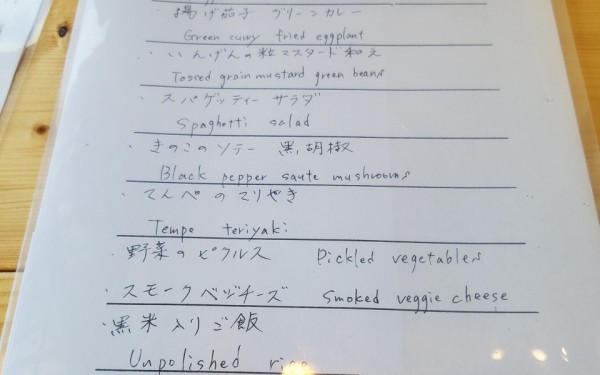 ・揚げ茄子 グリーンカレー
Green curry fried eggplant
・いんげんの粒マスタード和え
Tossed grain mustard green beans
・スパゲッティー サラダ
Spaghetti salad
・きのこのソテー 黒胡椒
Black pepper saute mushrooms
・てんぺのてりやき
Tempe teriyaki
・野菜のピクルス Pickled vegetables
・スモークベジチーズ Smoked veggie cheese
・黒米入りご飯
Unpolished rice